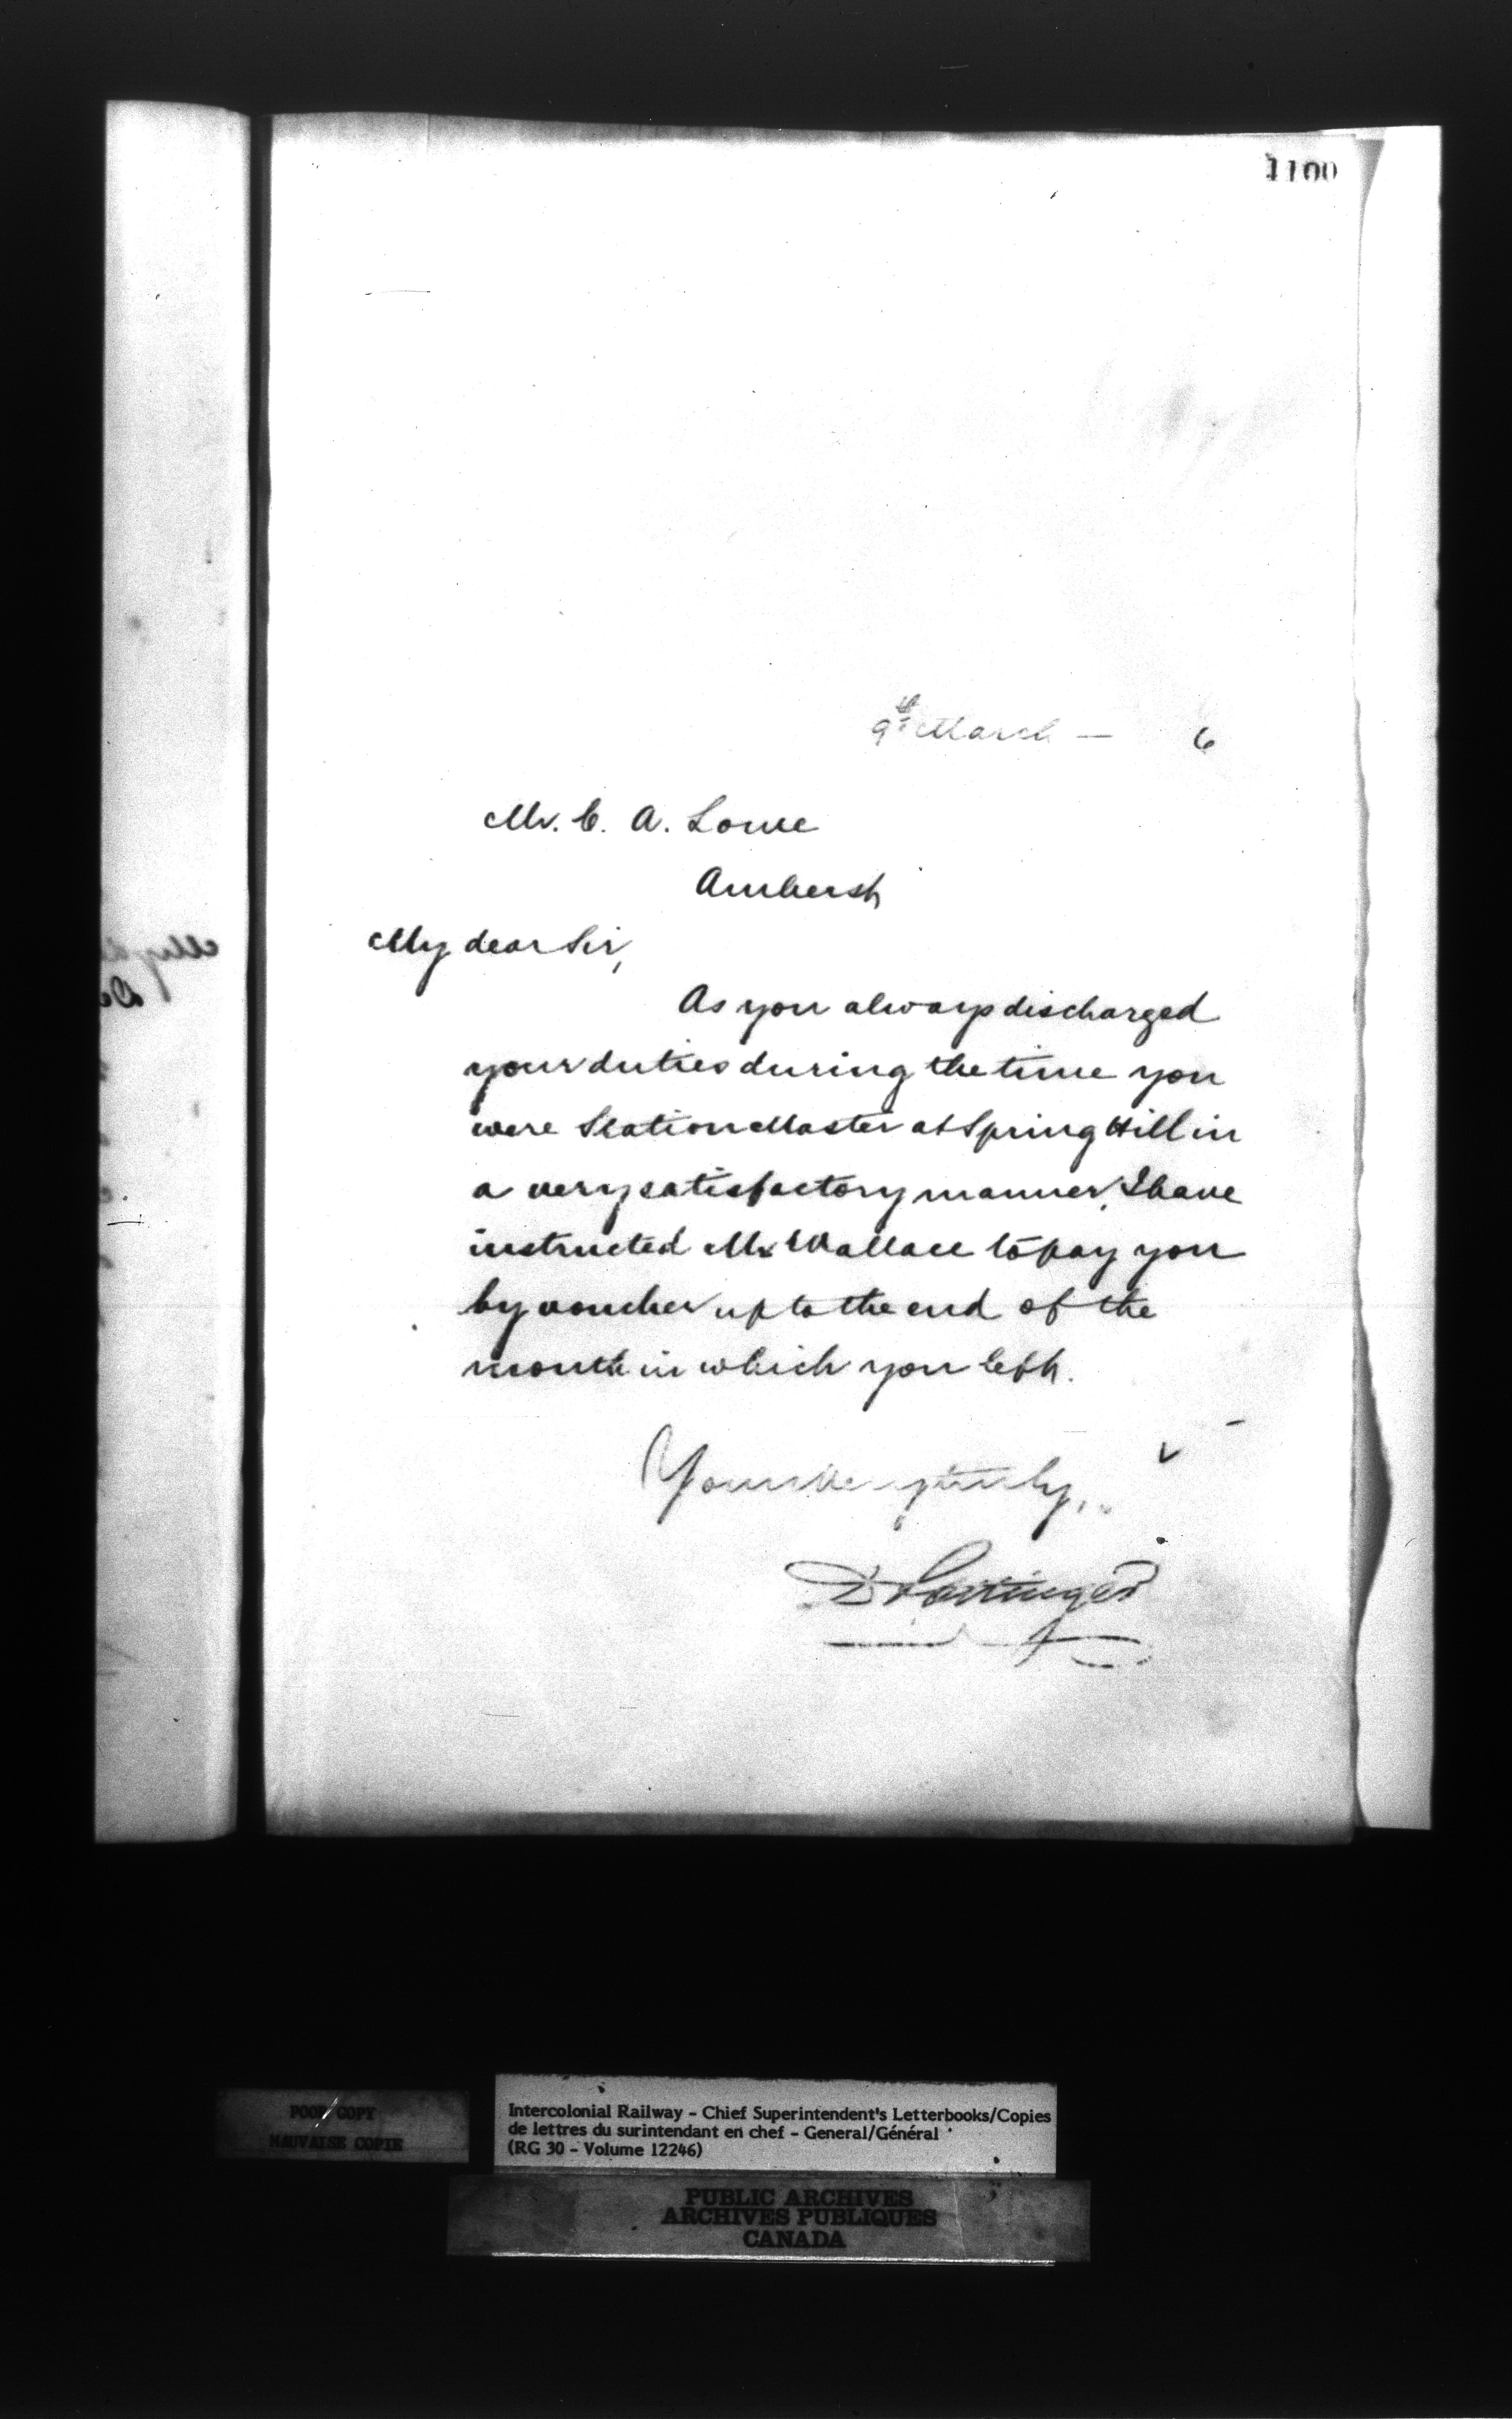 1100
9th March — 6
Mr. C. A. Lowe
Amherst
My dear Sir,
As you always discharged
your duties during the time you
were Station Master at Spring Hill in
a very satisfactory manner, I have
instructed Mr Wallace to pay you
by voucher up to the end of the
month in which you left.
Yours very truly,
D Pottinger
POOR COPY
MAUVAISE COPIE
Intercolonial Railway - Chief Superintendent's Letterbooks/Copies
de lettres du surintendant en chef - General/Général
(RG 30 - Volume 12246)
PUBLIC ARCHIVES
ARCHIVES PUBLIQUES
CANADA